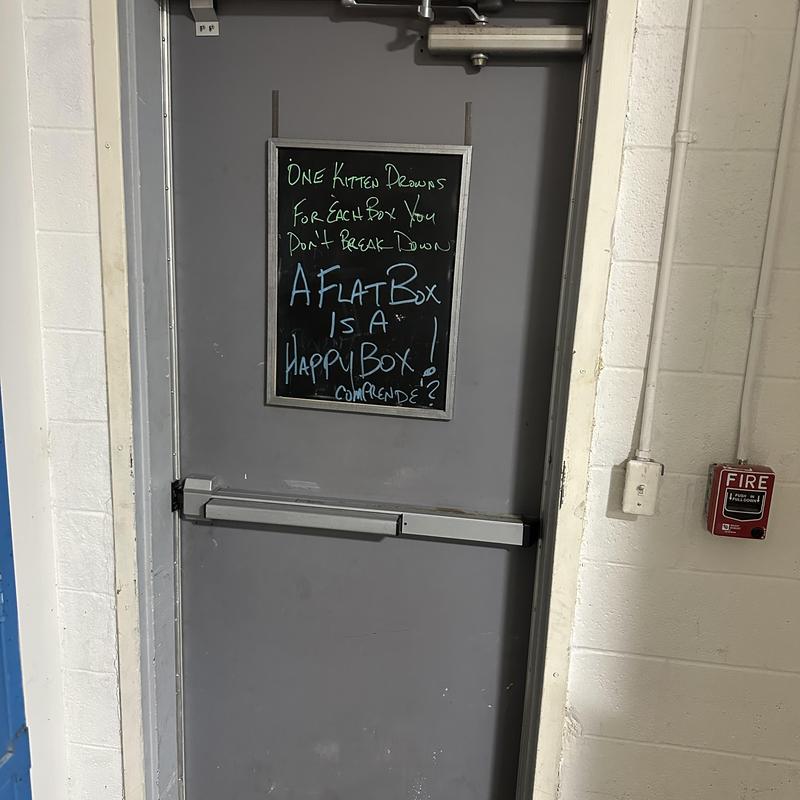 ONE KITTEN DROWNS
FOR EACH BOX YOU
DON'T BREAK DOWN
A FLAT BOX
IS A
HAPPY BOX!
COMPRENDE?
FIRE
PUSH IN
PULL DOWN